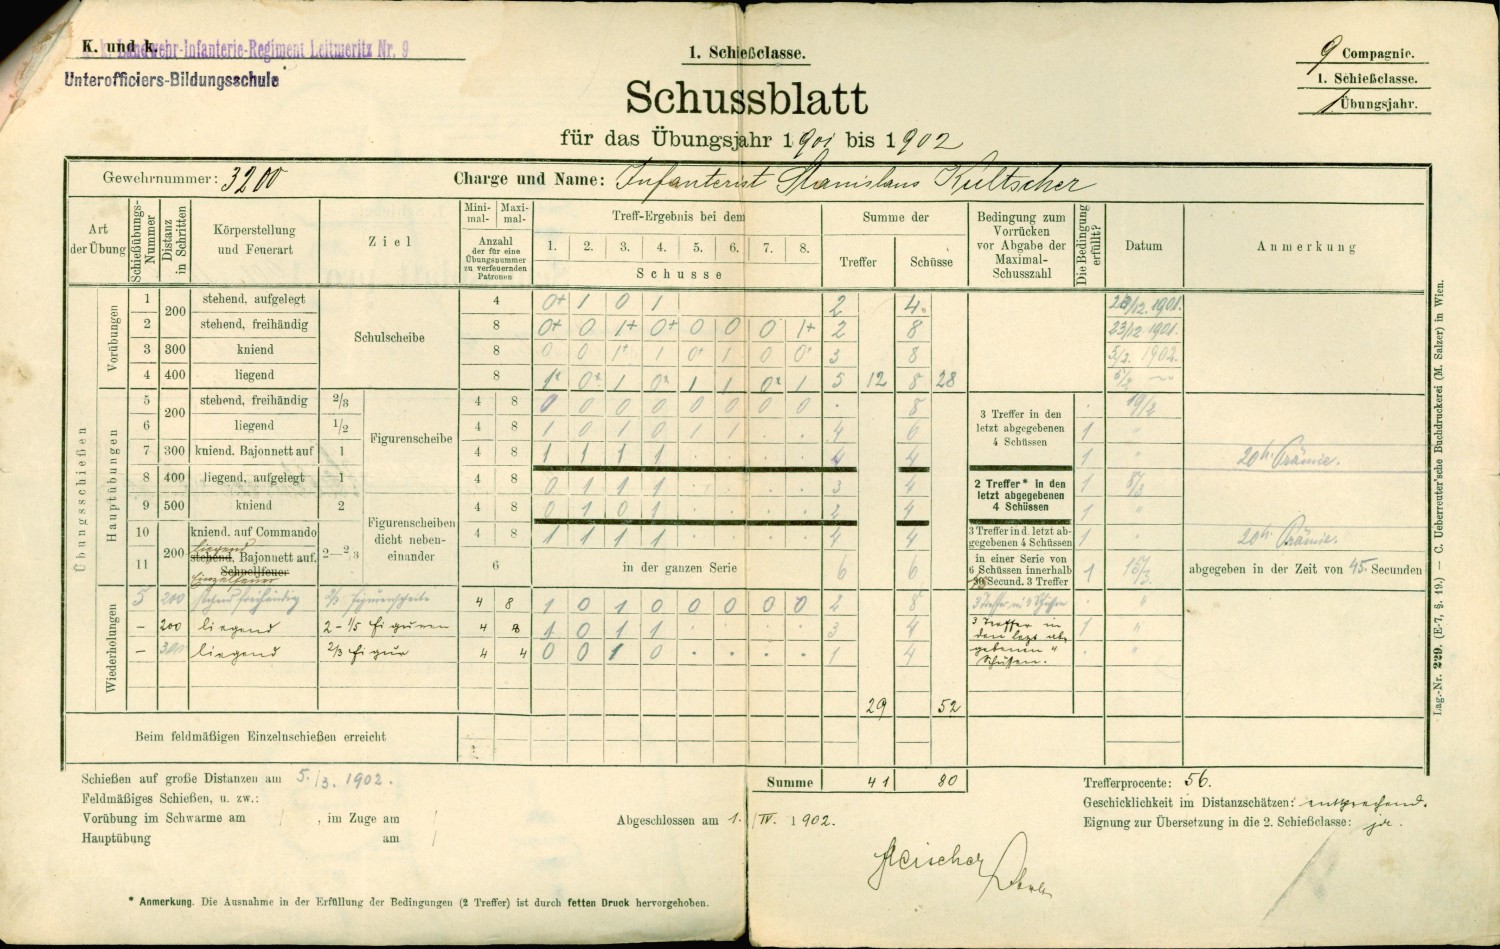 K. und k.
k. Landwehr-Infanterie-Regiment Leitmeritz Nr. 9
Unterofficiers-Bildungsschule
1. Schießclasse.
9 Compagnie.
1. Schießclasse.
1 Übungsjahr.
Schussblatt
für das Übungsjahr 1901 bis 1902
Gewehrnummer: 3200 Charge und Name: Infanterist Stanislaus Kultscher
Art der Übung
Schießübungs-Nummer
Distanz in Schritten
Körperstellung und Feuerart
Ziel
Mini-mal- Maxi-mal-
Anzahl der für eine Übungsnummer zu verfeuernden Patronen
Treff-Ergebnis bei dem
1. 2. 3. 4. 5. 6. 7. 8.
Schusse
Summe der
Treffer Schüsse
Bedingung zum Vorrücken vor Abgabe der Maximal-Schusszahl
Die Bedingung erfüllt?
Datum
Anmerkung
Übungsschießen
Vorübungen
1 200 stehend, aufgelegt Schulscheibe 4 0+ 1 0 1 2 4. 23/12. 1901.
2 stehend, freihändig 8 0+ 0 1+ 0+ 0 0 0 1+ 2 8 23/12 1901.
3 300 kniend 8 0 0 1+ 1 0+ 1 0 0+ 3 8 5/2. 1902.
4 400 liegend 8 1+ 0+ 1 0+ 1 1 0+ 1 5 12 8 28 5/2 〃
Hauptübungen
5 200 stehend, freihändig 2/3 Figurenscheibe 4 8 0 0 0 0 0 0 0 0 . 8 3 Treffer in den letzt abgegebenen 4 Schüssen . 19/2
6 liegend 1/2 4 8 1 0 1 0 1 1 . . 4 6 1 〃
7 300 kniend. Bajonnett auf 1 4 8 1 1 1 1 . . . . 4 4 1 〃 20 h. Prämie.
8 400 liegend, aufgelegt 1 4 8 0 1 1 1 . . . . 3 4 2 Treffer* in den letzt abgegebenen 4 Schüssen 1 8/3
9 500 kniend 2 Figurenscheiben dicht neben-einander 4 8 0 1 0 1 . . . . 2 4 1 〃
10 200 kniend. auf Commando 2—2/3 4 8 1 1 1 1 . . . . 4 4 3 Treffer in d. letzt ab-gegebenen 4 Schüssen 1 〃 20 h. Prämie.
liegend
11 stehend, Bajonnett auf. Schnellfeuer 6 in der ganzen Serie 6 6 in einer Serie von 6 Schüssen innerhalb Secund. 3 Treffer 1 15/3. abgegeben in der Zeit von 45. Secunden
Einzelfeuer
Wiederholungen
5 200 stehend freihändig 2/3 Figurenscheibe 4 8 1 0 1 0 0 0 0 0 2 8 3 Treffer in 4 Schüssen . 〃
– 200 liegend 2 - 1/5 Figuren 4 8 1 0 1 1 . . . . 3 4 3 Treffer in den letzt ab-gegebenen 4 Schüssen. 1 〃
– 300 liegend 2/3 Figur 4 4 0 0 1 0 . . . . 1 4 . 〃
29 52
Beim feldmäßigen Einzelnschießen erreicht
Schießen auf große Distanzen am 5./3. 1902.
Feldmäßiges Schießen, u. zw.:
Vorübung im Schwarme am / , im Zuge am /
Hauptübung am /
Summe 41 80
Abgeschlossen am 1. /IV. 1902.
Trefferprocente: 56.
Geschicklichkeit im Distanzschätzen: entsprechend.
Eignung zur Übersetzung in die 2. Schießclasse: ja.
* Anmerkung. Die Ausnahme in der Erfüllung der Bedingungen (2 Treffer) ist durch fetten Druck hervorgehoben.
Lag.-Nr. 229. (E-7, §. 19.) — C. Ueberreuter'sche Buchdruckerei (M. Salzer) in Wien.